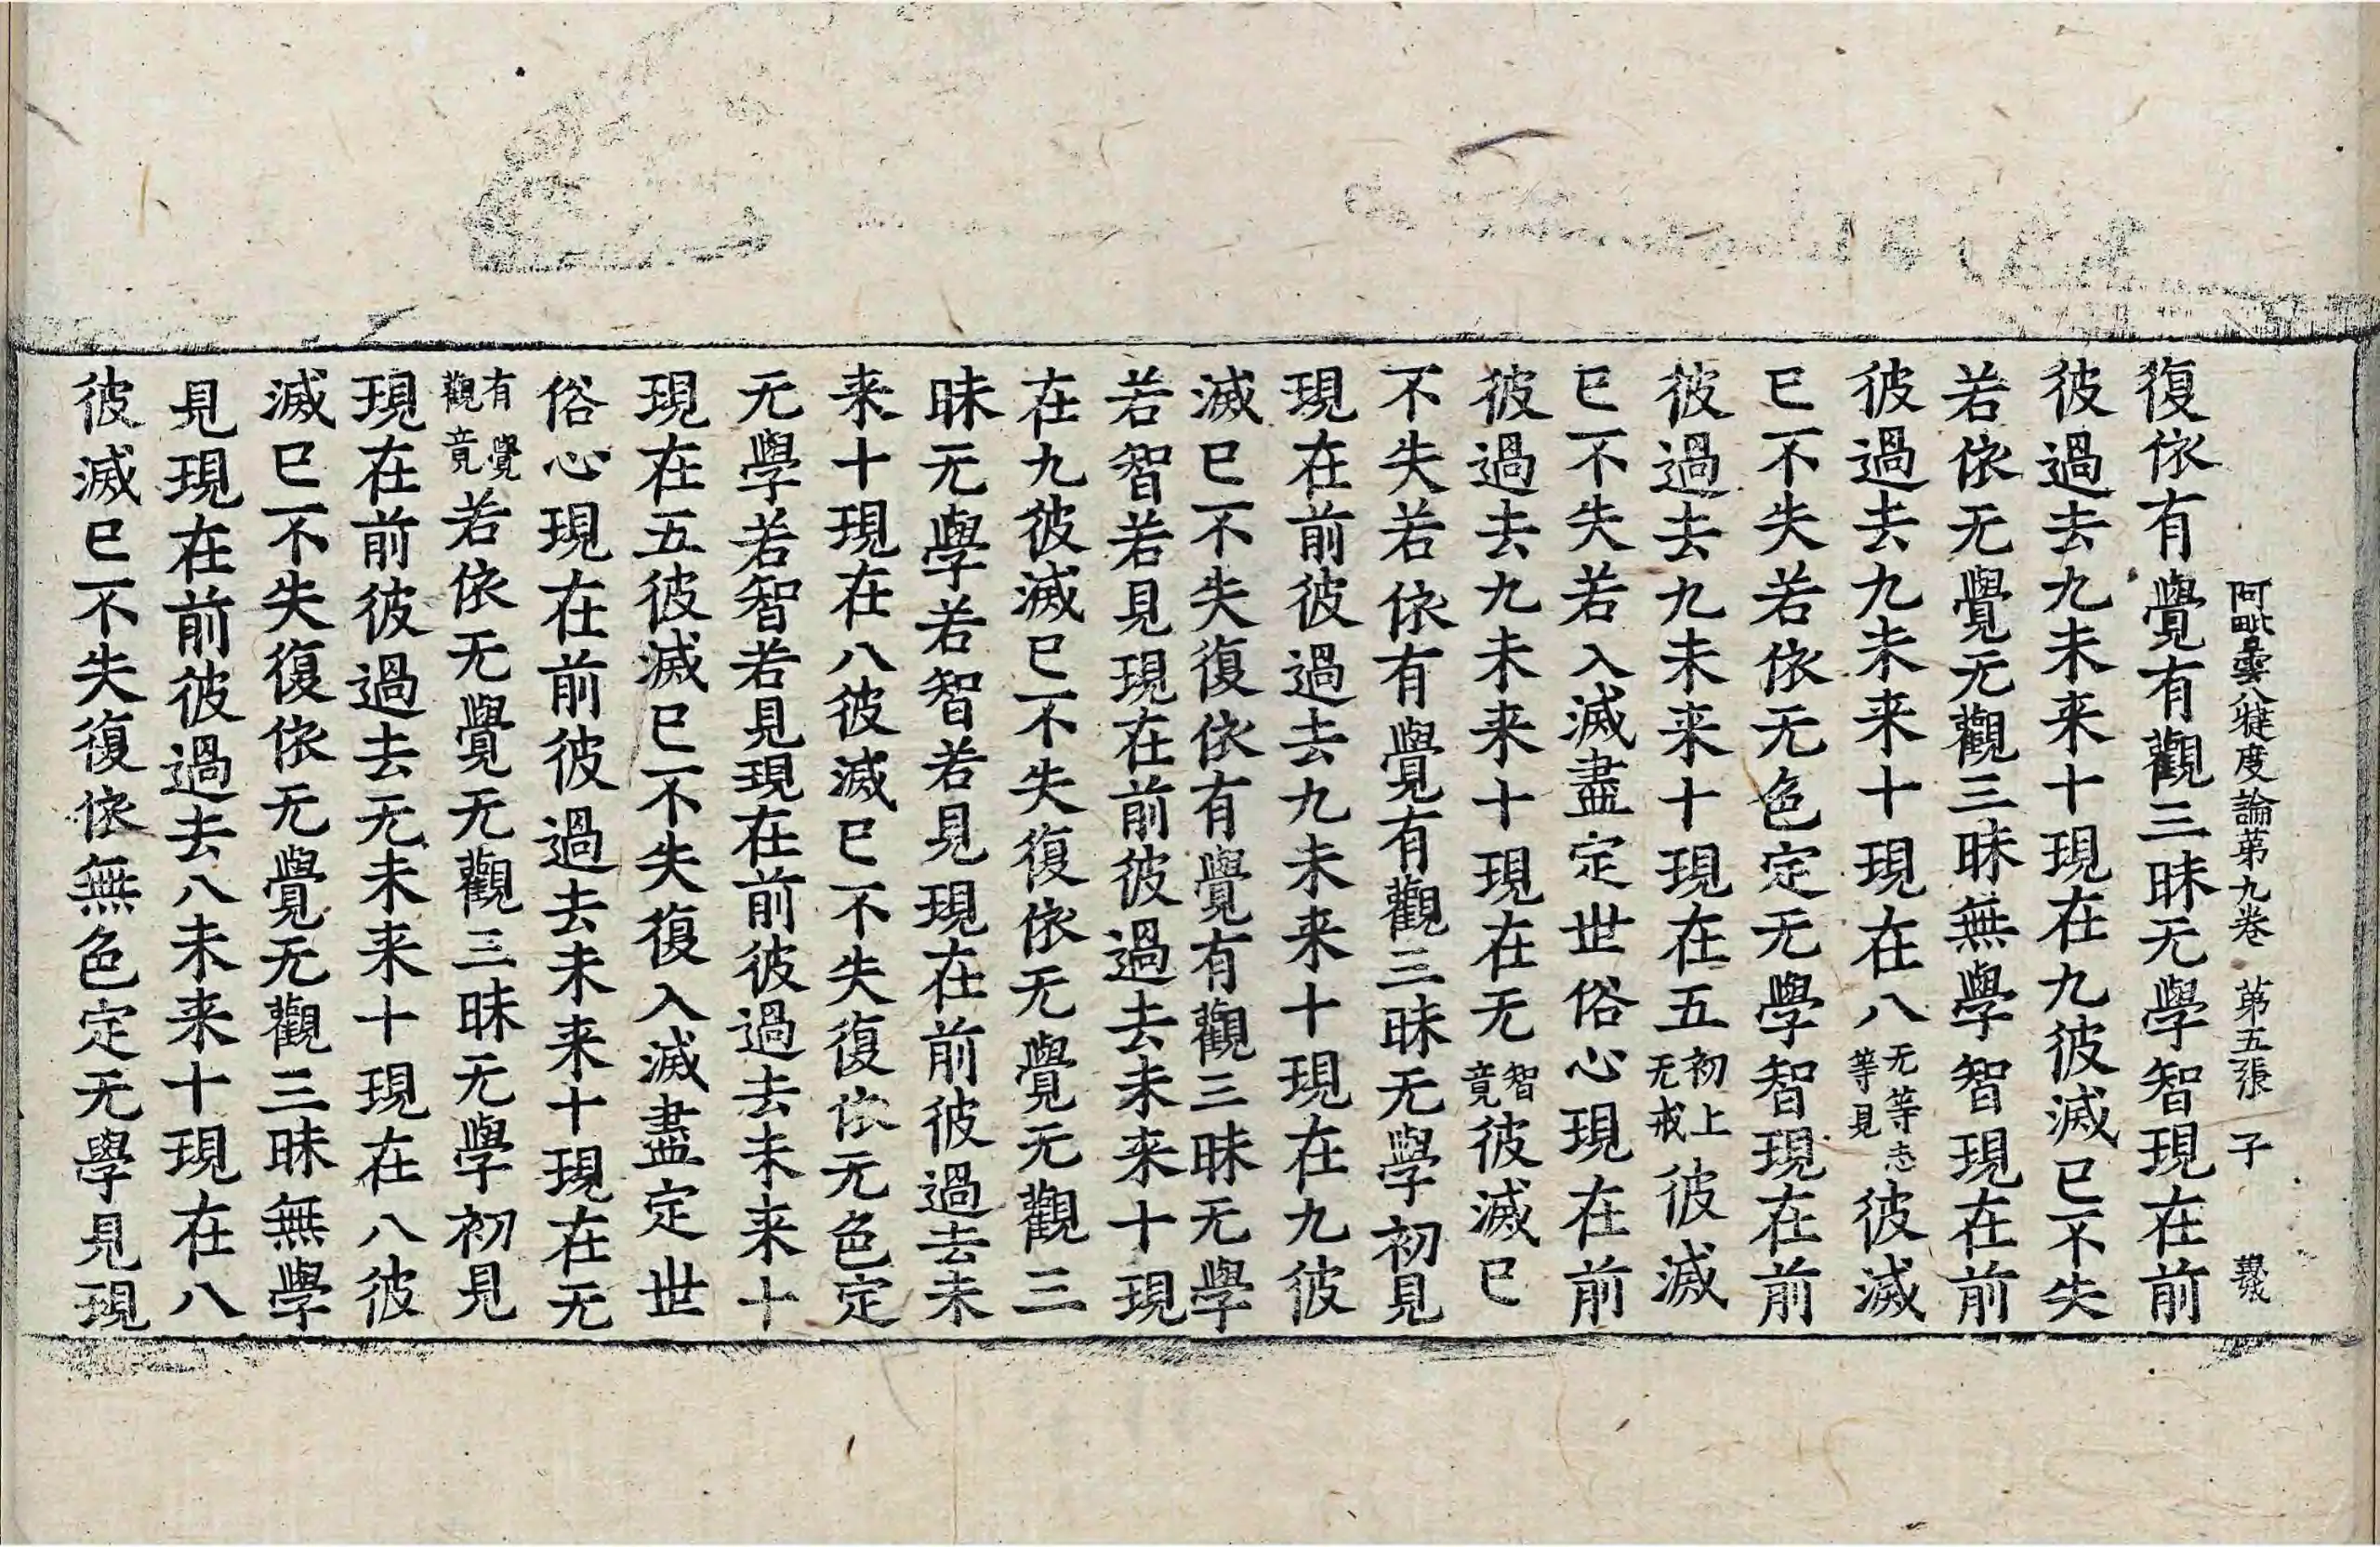 阿毗曇八犍度論第九卷 第五張 子
復依有覺有觀三昧无學智現在前
彼過去九未来十現在九彼滅已不失
若依无覺无觀三昧無學智現在前
彼過去九未来十現在八无等志等見彼滅
已不失若依无色定无學智現在前
彼過去九未来十現在五初上无戒彼滅
已不失若入滅盡定世俗心現在前
彼過去九未来十現在无智竟彼滅已
不失若依有覺有觀三昧无學初見
現在前彼過去九未来十現在九彼
滅已不失復依有覺有觀三昧无學
若智若見現在前彼過去未来十現
在九彼滅已不失復依无覺无觀三
昧无學若智若見現在前彼過去未
来十現在八彼滅已不失復依无色定
无學若智若見現在前彼過去未来十
現在五彼滅已不失復入滅盡定世
俗心現在前彼過去未来十現在无
有覺觀竟若依无覺无觀三昧无學初見
現在前彼過去无未来十現在八彼
滅已不失復依无覺无觀三昧無學
見現在前彼過去八未来十現在八
彼滅已不失復依無色定无學見現